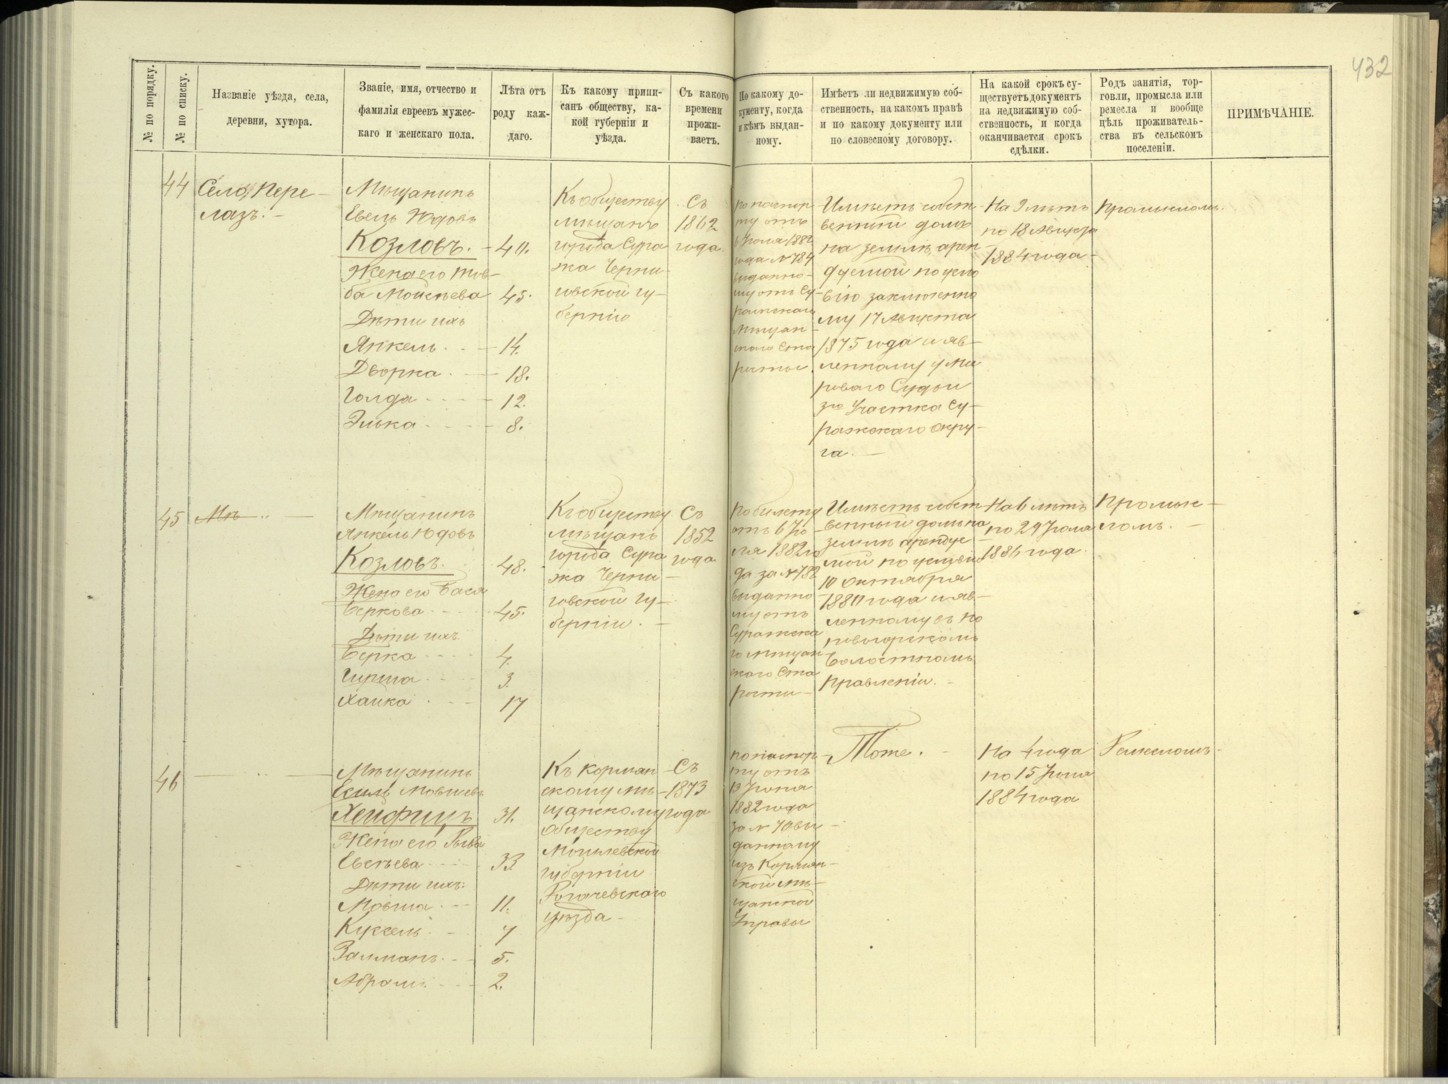 432
№ по порядку.
№ по списку.
Названіе уѣзда, села,
деревни, хутора.
Званіе, имя, отчество и
фамилія евреевъ мужес-
каго и женскаго пола.
Лѣта отъ
роду каж-
даго.
Къ какому припи-
санъ обществу, ка-
кой губерніи и
уѣзда.
Съ какого
времени
прожи-
ваетъ.
По какому до-
кументу, когда
и кѣмъ выдан-
ному.
Имѣетъ ли недвижимую соб-
ственность, на какомъ правѣ
и по какому документу или
по словесному договору.
На какой срокъ су-
ществуетъ документъ
на недвижимую соб-
ственность, и когда
оканчивается срокъ
сдѣлки.
Родъ занятія, тор-
говли, промысла или
ремесла и вообще
цѣль проживатель-
ства въ сельскомъ
поселеніи.
ПРИМѢЧАНІЕ.
44
Село Пере-
лазъ. -
Мѣщанинъ
Евель Юдовъ
Козловъ. - 40.
Жена его
Моисѣева 45.
Дѣти ихъ
Янкель. - 14.
Дворка - 18.
Голда - 12.
Элька - 8.
Къ обществу
мѣщанъ
города Сура-
жа Черни-
говской гу-
берніи
Съ
1862
года
По паспор-
ту отъ
Іюля 1882
года № 784
выданно-
му отъ Су-
ражскаго
Мѣщан-
скаго Ста-
росты.
Имѣетъ собст-
венный домъ
на землѣ арен-
дуемой по усло-
вію заключенно-
му 17 Августа
1875 года и яв-
ленному у Ми-
роваго Судьи
3го Участка Су-
ражскаго Окру-
га. -
На 9 лѣтъ
по 18 Августа
1884 года -
Промысломъ.
45
Мѣщанинъ
Янкель Юдовъ
Козловъ. 48.
Жена его Бася
Беркова - 45.
Дѣти ихъ
Берка - 4.
Гирша - 3.
Хайка - 17
Къ обществу
мѣщанъ
города Сура-
жа Черни-
говской гу-
берніи. -
Съ
1852
года
По билету
отъ 6 Ію-
ля 1882 го-
да за № 782
выданно-
му отъ
Суражска-
го Мѣщан-
скаго Ста-
росты -
Имѣетъ собст-
венный домъ на
землѣ арендуе-
мой по условію
10 Октября
1880 года и яв-
ленному въ
Волостномъ
Правленіи. -
На 6 лѣтъ
по 29 Іюня
1886 года.
Промыс-
ломъ. -
46
Мѣщанинъ
Мовшевъ
Хейфицъ 31.
Жена его
Евсѣева - 33
Дѣти ихъ:
Мовша - 11.
Кусель - 7
Залманъ - 5.
Абрамъ - 2.
Къ Корман-
скому мѣ-
щанскому
обществу
Могилевской
губерніи
Рогачевскаго
уѣзда -
Съ
1873
года
По паспор-
ту отъ
Іюня
1882 года
за № 70 вы-
данному
изъ Корман-
ской мѣ-
щанской
Управы
Тоже. -
На 4 года
по 15 Іюня
1884 года
Ремесломъ -